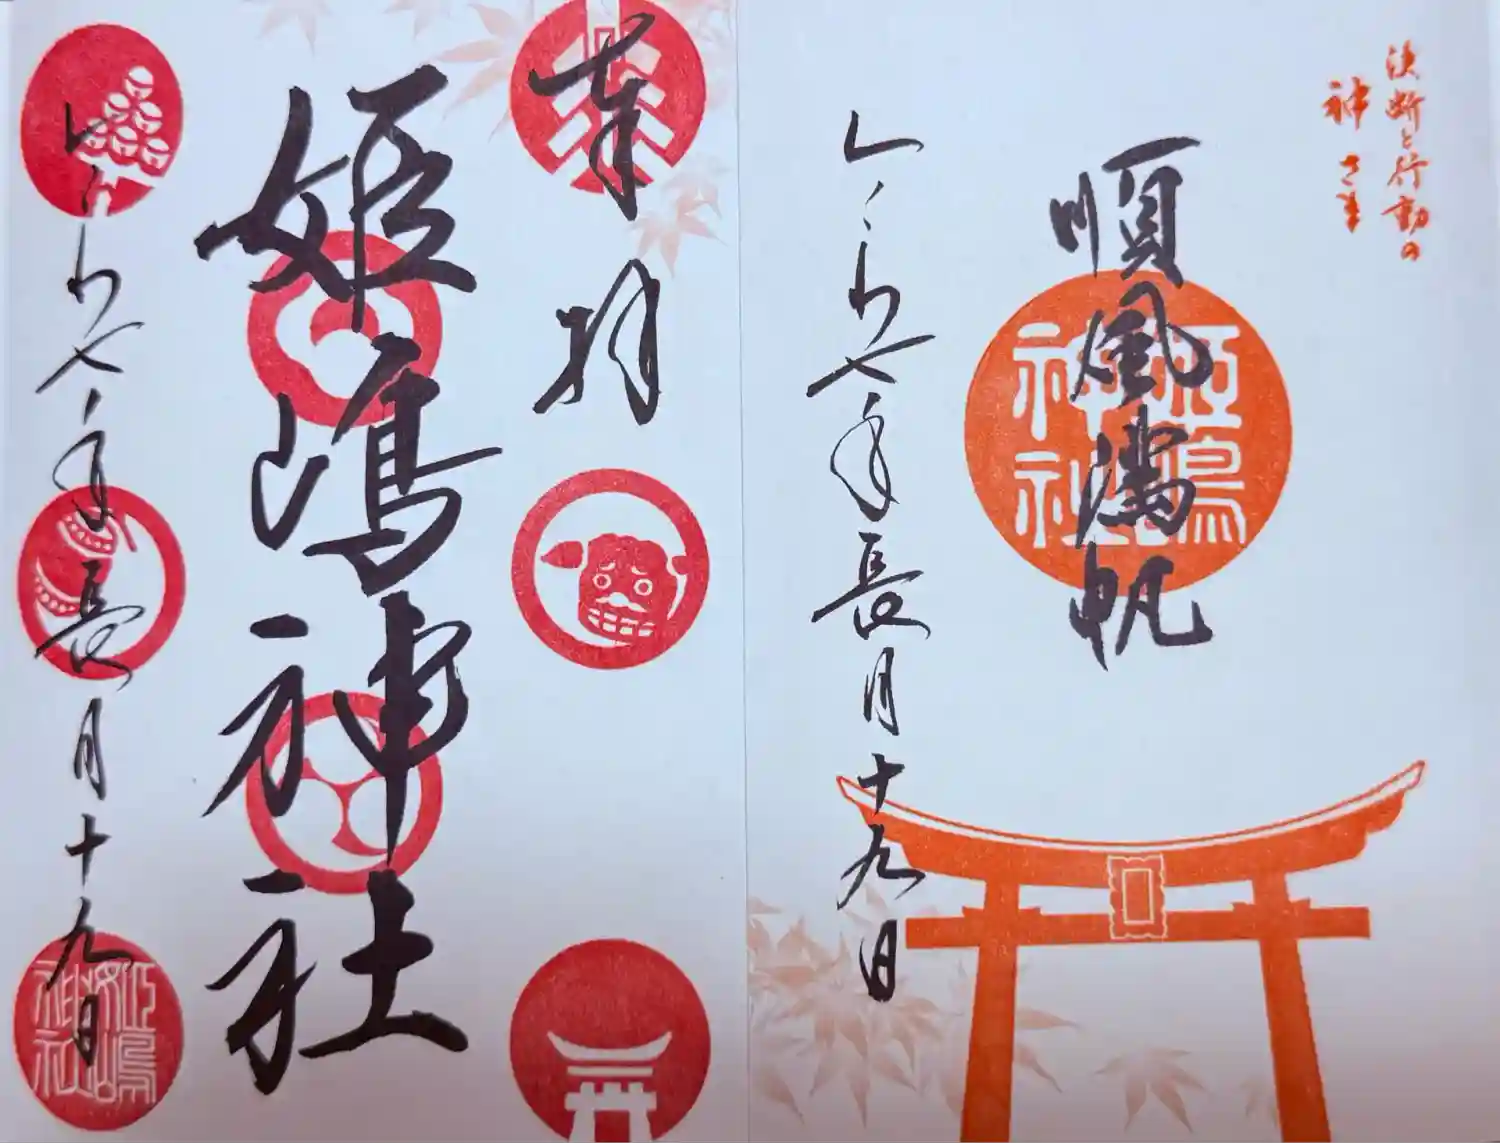 決断と行動の
神さま
順風満帆
姫嶋神社
令和七年長月十九日
奉拝
姫嶋神社
令和七年長月十九日
姫嶋神社